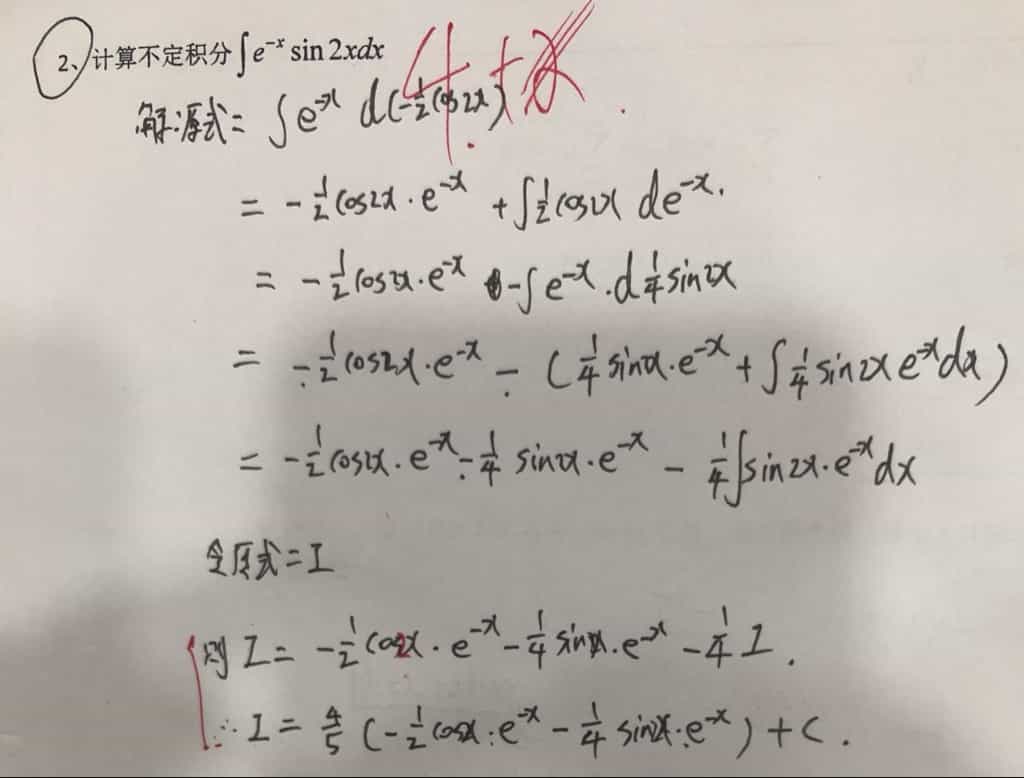 2、计算不定积分∫e⁻ˣ sin 2xdx 4.+
解:原式= ∫e⁻ˣ d(-½cos2x)
= -½cos2x·e⁻ˣ + ∫½cos2x de⁻ˣ.
= -½cos2x·e⁻ˣ -∫e⁻ˣ.d¼sin2x
= -½cos2x·e⁻ˣ - (¼sin2x·e⁻ˣ + ∫¼sin2x e⁻ˣdx)
= -½cos2x·e⁻ˣ - ¼ sin2x·e⁻ˣ - ¼∫sin2x·e⁻ˣdx
令原式=I
则 I= -½cos2x·e⁻ˣ - ¼sinx·e⁻ˣ - ¼I.
∴ I= ⅘(-½cosx·e⁻ˣ - ¼sinx·e⁻ˣ)+C.